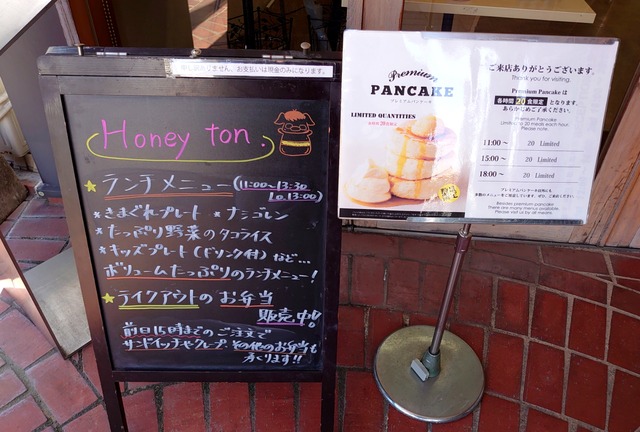 申し訳ありません、お支払いは現金のみになります。
Honey ton.
ランチメニュー(11:00〜13:30
L.o.13:00)
*きまぐれプレート *ナシゴレン
*たっぷり野菜のタコライス
*キッズプレート(ドリンク付)など…
ボリュームたっぷりのランチメニュー!
テイクアウトのお弁当
販売中!
前日15時までのご注文で
サンドイッチやクレープ、その他のお弁当も
承ります!!
Premium
PANCAKE
プレミアムパンケーキ
LIMITED QUANTITIES
各時間20食限定
ご来店ありがとうございます。
Thank you for visiting.
Premium Pancake は
各時間 20 食限定 となります。
あらかじめご了承ください。
Premium Pancake
Limited to 20 meals each hour
Please note.
11:00〜 20 Limited
15:00〜 20 Limited
18:00〜 20 Limited
プレミアムパンケーキ以外にも
多数のメニューをご用意しています。ぜひ、ご来店ください。
Besides premium pancake
There are many menus available.
Please visit us by all means.